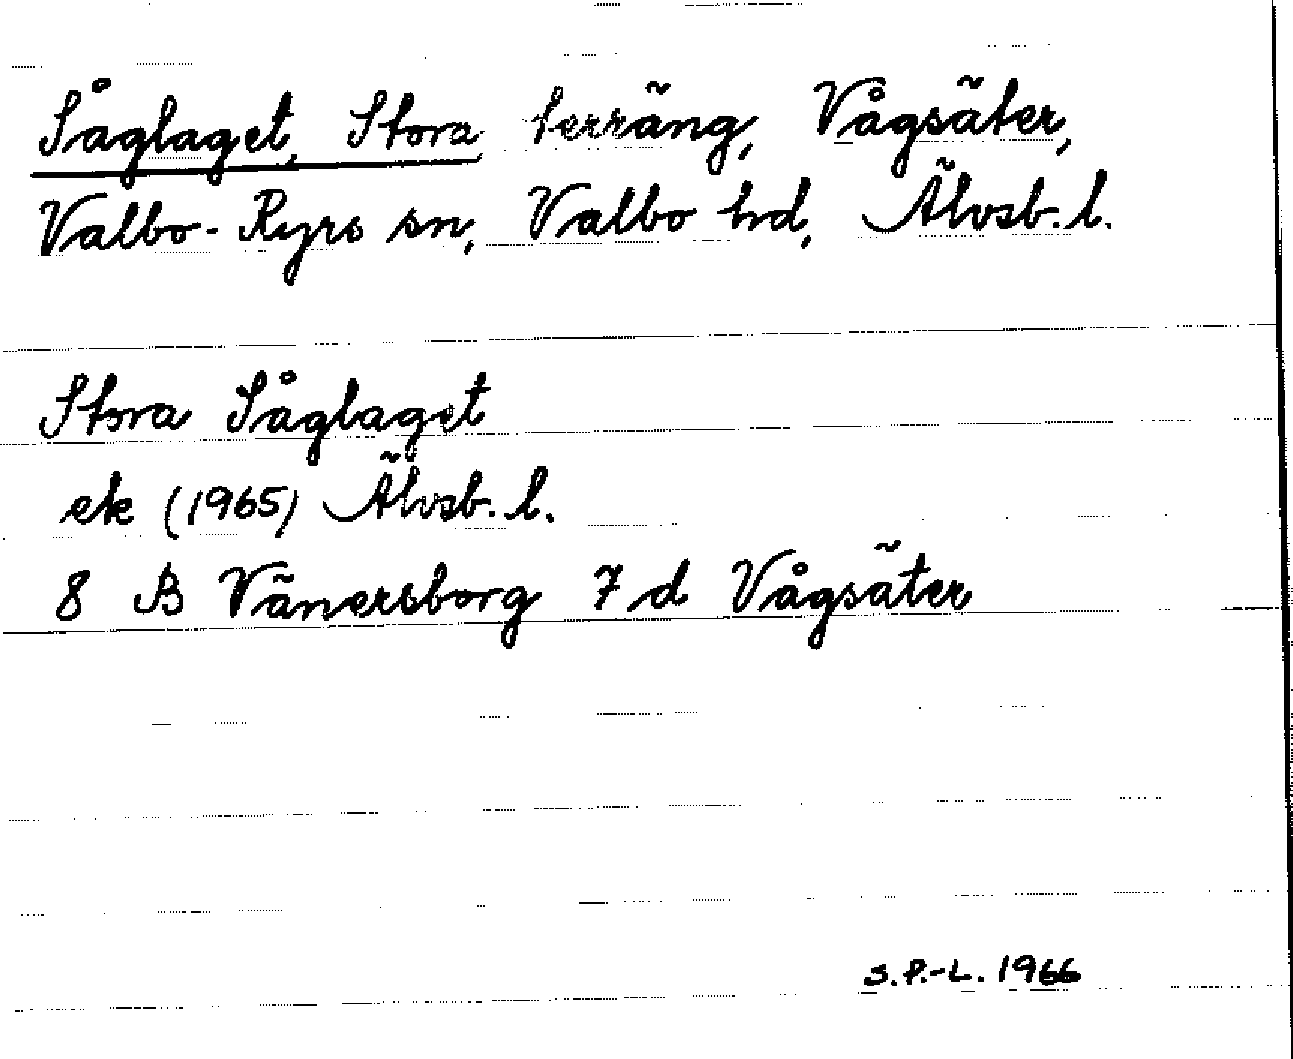 Såglaget, Stora terräng, Vågsäter,
Valbo-Ryrs sn, Valbo hd, Älvsb. l.
Stora Såglaget
ek (1965) Älvsb. l.
8 B Vänersborg 7 d Vågsäter
S.P.-L. 1966